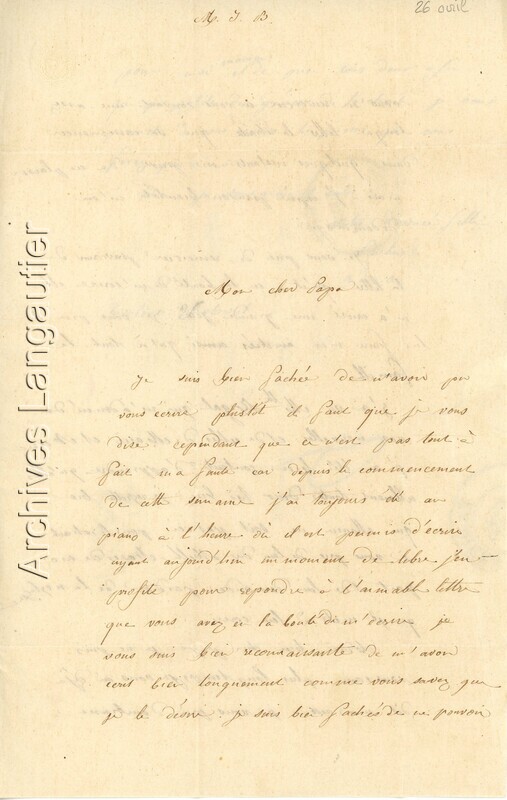 26 avril
M. J. B.
Mon cher Papa
Je suis bien fachée de n'avoir pu
vous écrire plustôt il faut que je vous
dise cependant que ce n'est pas tout à
fait ma faute car depuis le commencement
de cette semaine j'ai toujours été au
piano à l'heure où il est permis d'écrire
ayant aujourd'hui un moment de libre j'en
profite pour repondre à l'aimable lettre
que vous avez eu la bonté de m'écrire je
vous suis bien reconnaissante de m'avoir
écrit bien longuement comme vous savez que
je le désire. je suis bien fachée de ne pouvoir
Archives Langautier